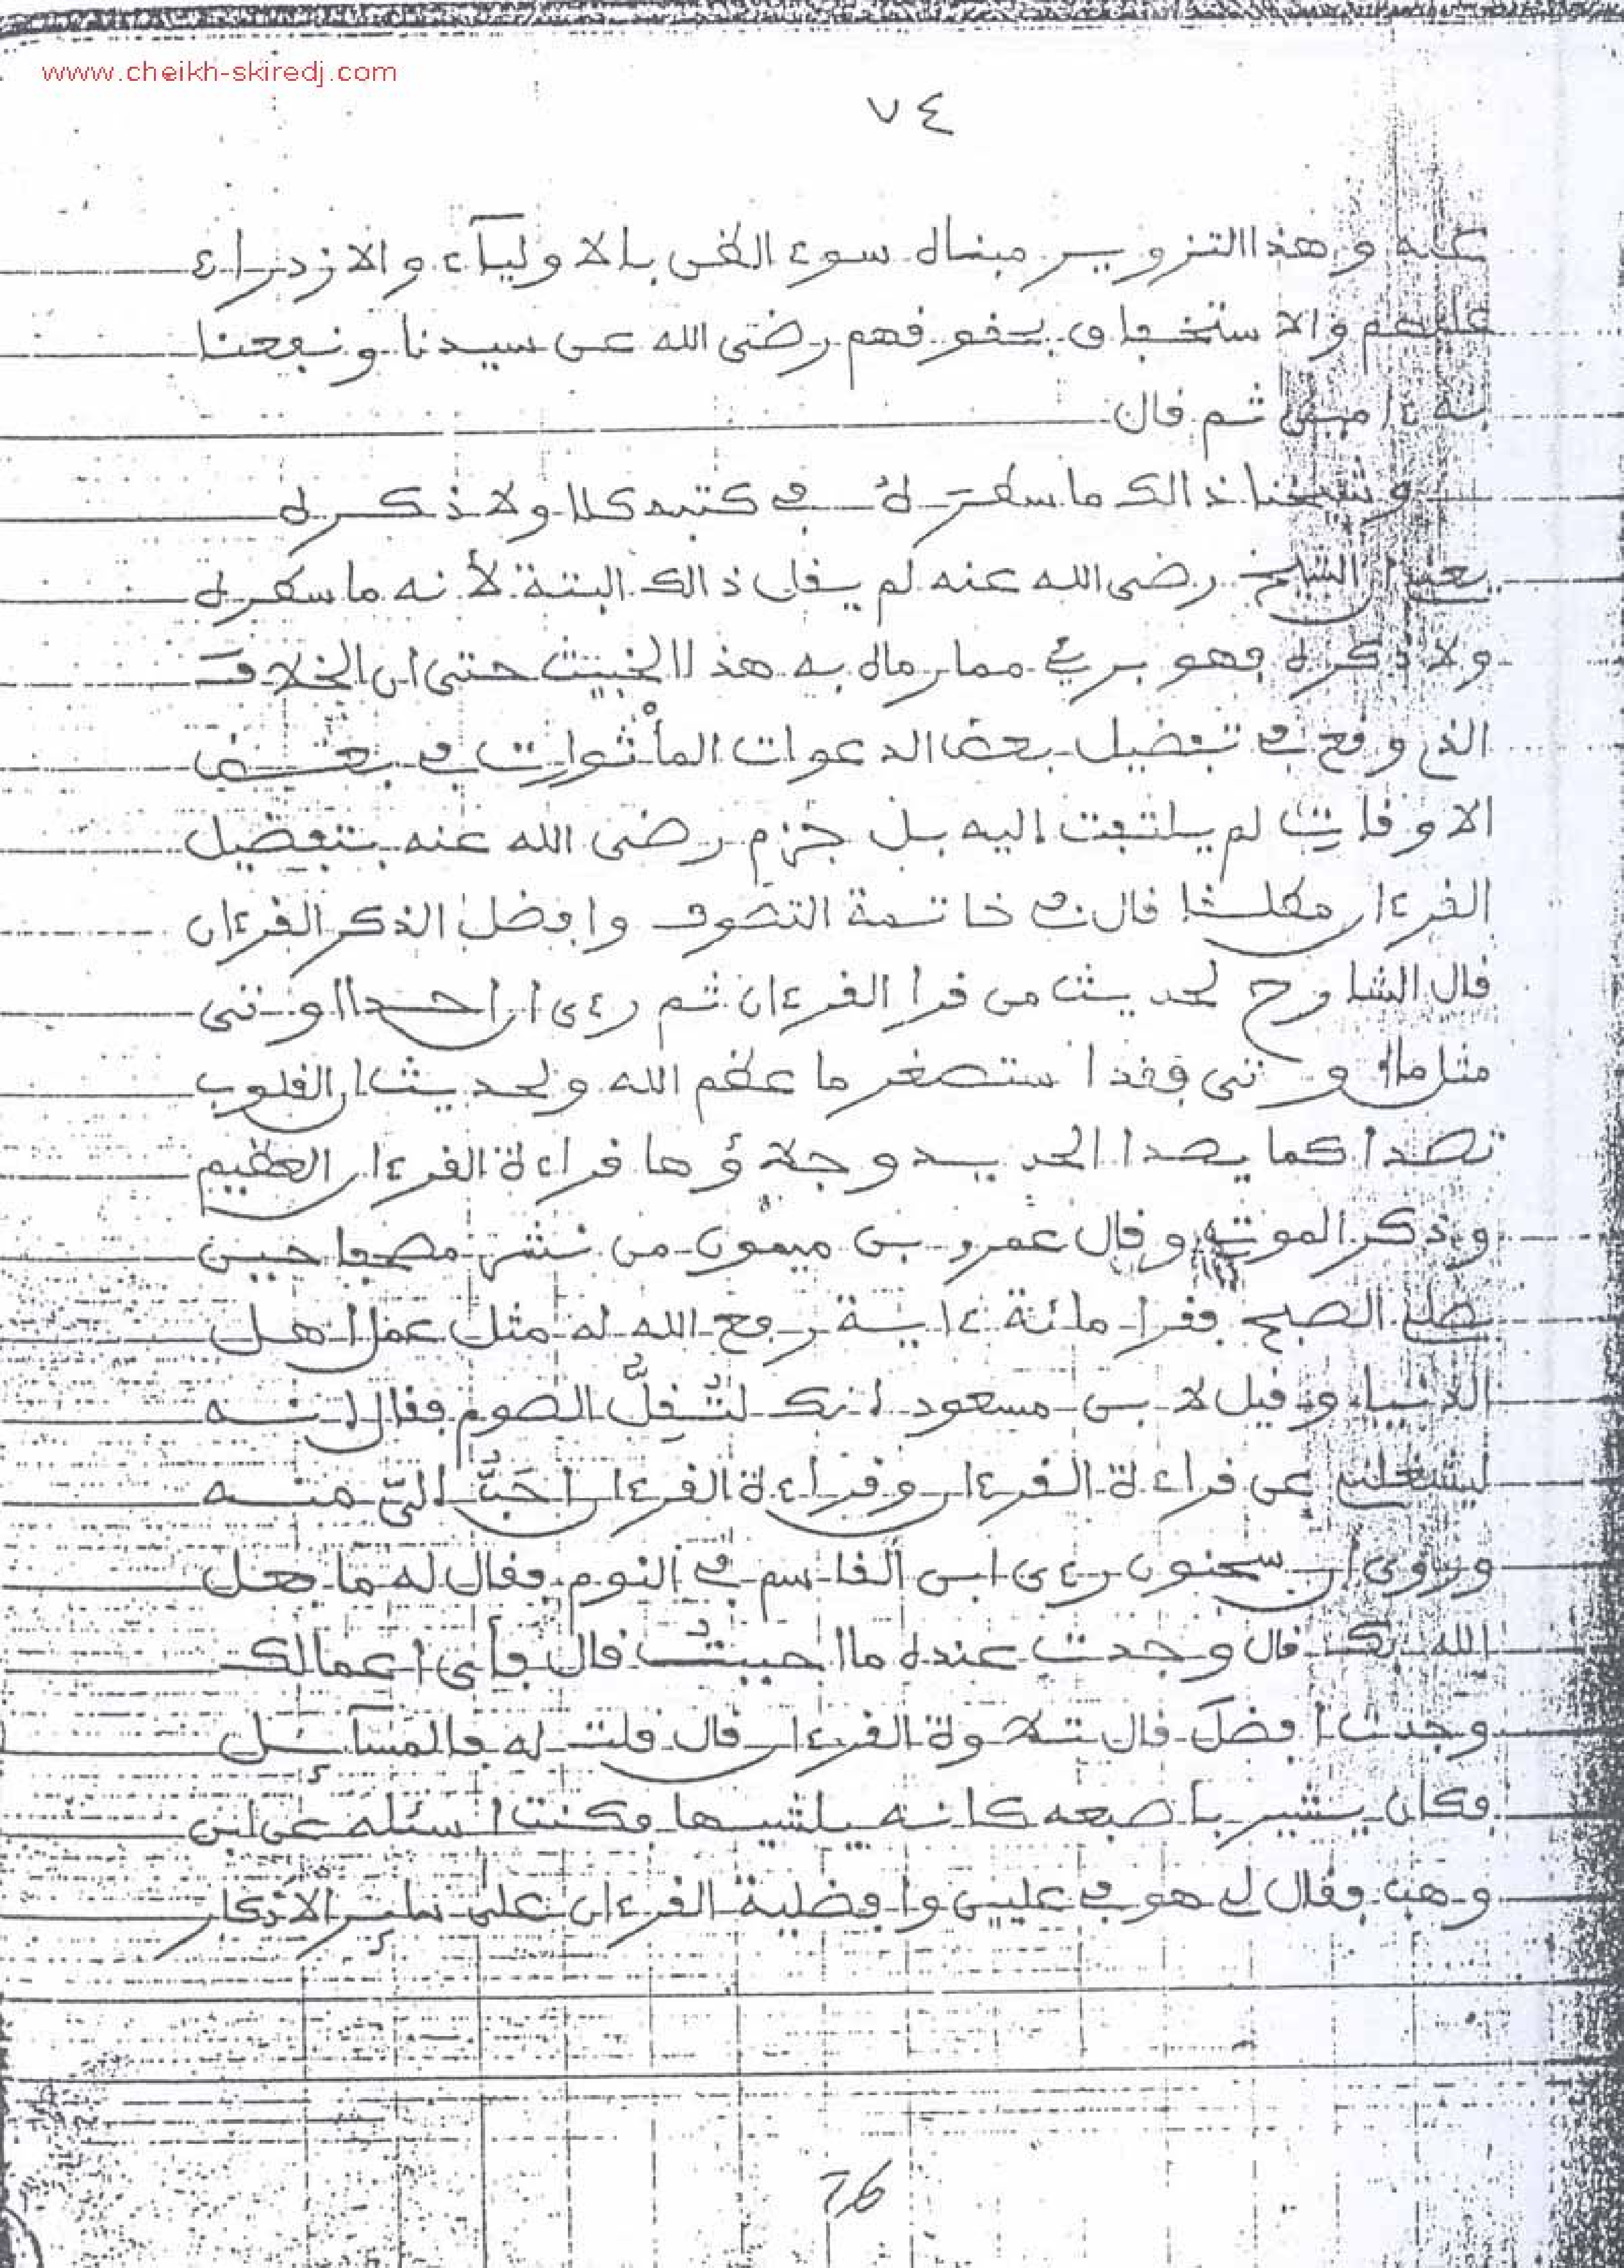 www.cheikh-skiredj.com
٧٤
عنه وهذا التزوير مبناه سوء الظن بالاوليآء والازدراء
عليهم والاستخفاف بحقوقهم رضى الله عن سيدنا ونفعنا
به ءامين ثم قال
وشيخنا ذالك ما سطره في كتبه كلا ولا ذكره
يعني ان الشيخ رضى الله عنه لم يقل ذالك البتة لأنه ما سطره
ولا ذكره فهو بريء مما رماه به هذا الخبيث حتى ان الخلاف
الذي وقع في تفضيل بعض الدعوات المأثورات في بعض
الاوقات لم يلتفت إليه بل جزم رضى الله عنه بتفضيل
القرءان مطلقا قال في خاتمة التصوف وافضل الذكر القرءان
قال الشارح لحديث من قرأ القرءان ثم رءى ان احدا اوتى
مثل ما اوتى فقد استصغر ما عظم الله ولحديث ان القلوب
تصدا كما يصدا الحديد وجلاؤها قراءة القرءان العظيم
وذكر الموت وقال عمرو بن ميمون من نشر مصحفا حين
صلى الصبح فقرا مائة ءاية رفع الله له مثل عمل اهل
الدنيا وقيل لابن مسعود انك لتُقِلُّ الصوم فقال انه
ليشغلني عن قراءة القرءان وقراءة القرءان احَبُّ اليّ منه
وروى ان سحنون رءى ابن القاسم في النوم فقال له ما فعل
الله بك قال وجدت عنده ما احببتُ قال فأي اعمالك
وجدت افضل قال تلاوة القرءان قال قلت له فالمسآئل
فكان يشير بأصبعه كانه يلشيها فكنت اسئله عن ابن
وهب فقال لي هو في عليين وافضلية القرءان على سائر الأذكار
76